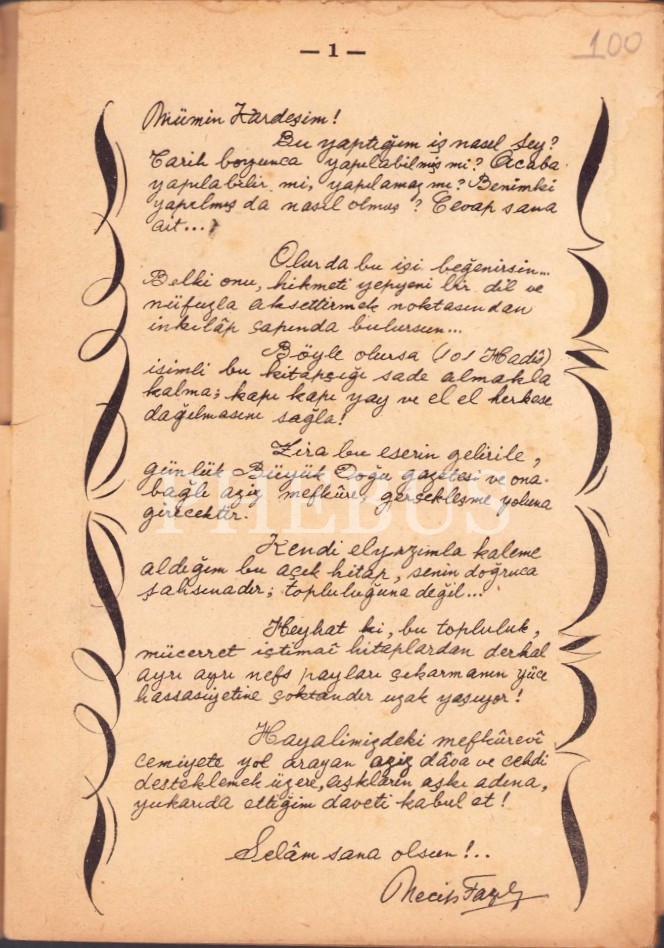 — 1 —
100
Mümin Kardeşim!
Bu yaptığım iş nasıl şey?
Tarih boyunca yapılabilmiş mi? Acaba
yapılabilir mi, yapılamaz mı? Benimki
yapılmış da nasıl olmuş? Cevap sana
ait...
Olur da bu işi beğenirsin...
Belki onu, hikmeti yepyeni bir dil ve
nüfuzla aksettirmek noktasından
inkılâp çapında bulursun...
Böyle olursa (101 Hadîs)
isimli bu kitapçığı sade almakla
kalma; kapı kapı yay ve el el herkese
dağılmasını sağla!
Zira bu eserin gelirile,
günlük Büyük Doğu gazetesi ve ona
bağlı aziz mefkûre, gerçekleşme yoluna
girecektir.
Kendi elyazımla kaleme
aldığım bu açık hitap, senin doğruca
şahsınadır; topluluğuna değil...
Heyhat ki, bu topluluk,
mücerret içtimaî hitaplardan derhal
ayrı ayrı nefs payları çıkarmanın yüce
hassasiyetine çoktandır uzak yaşıyor!
Hayalimizdeki mefkûrevî
cemiyete yol arayan aziz dâva ve cehdi
desteklemek üzere, aşkların aşkı adına,
yukarıda ettiğim daveti kabul et!
Selâm sana olsun!..
Necip Fazıl
PHEBUS